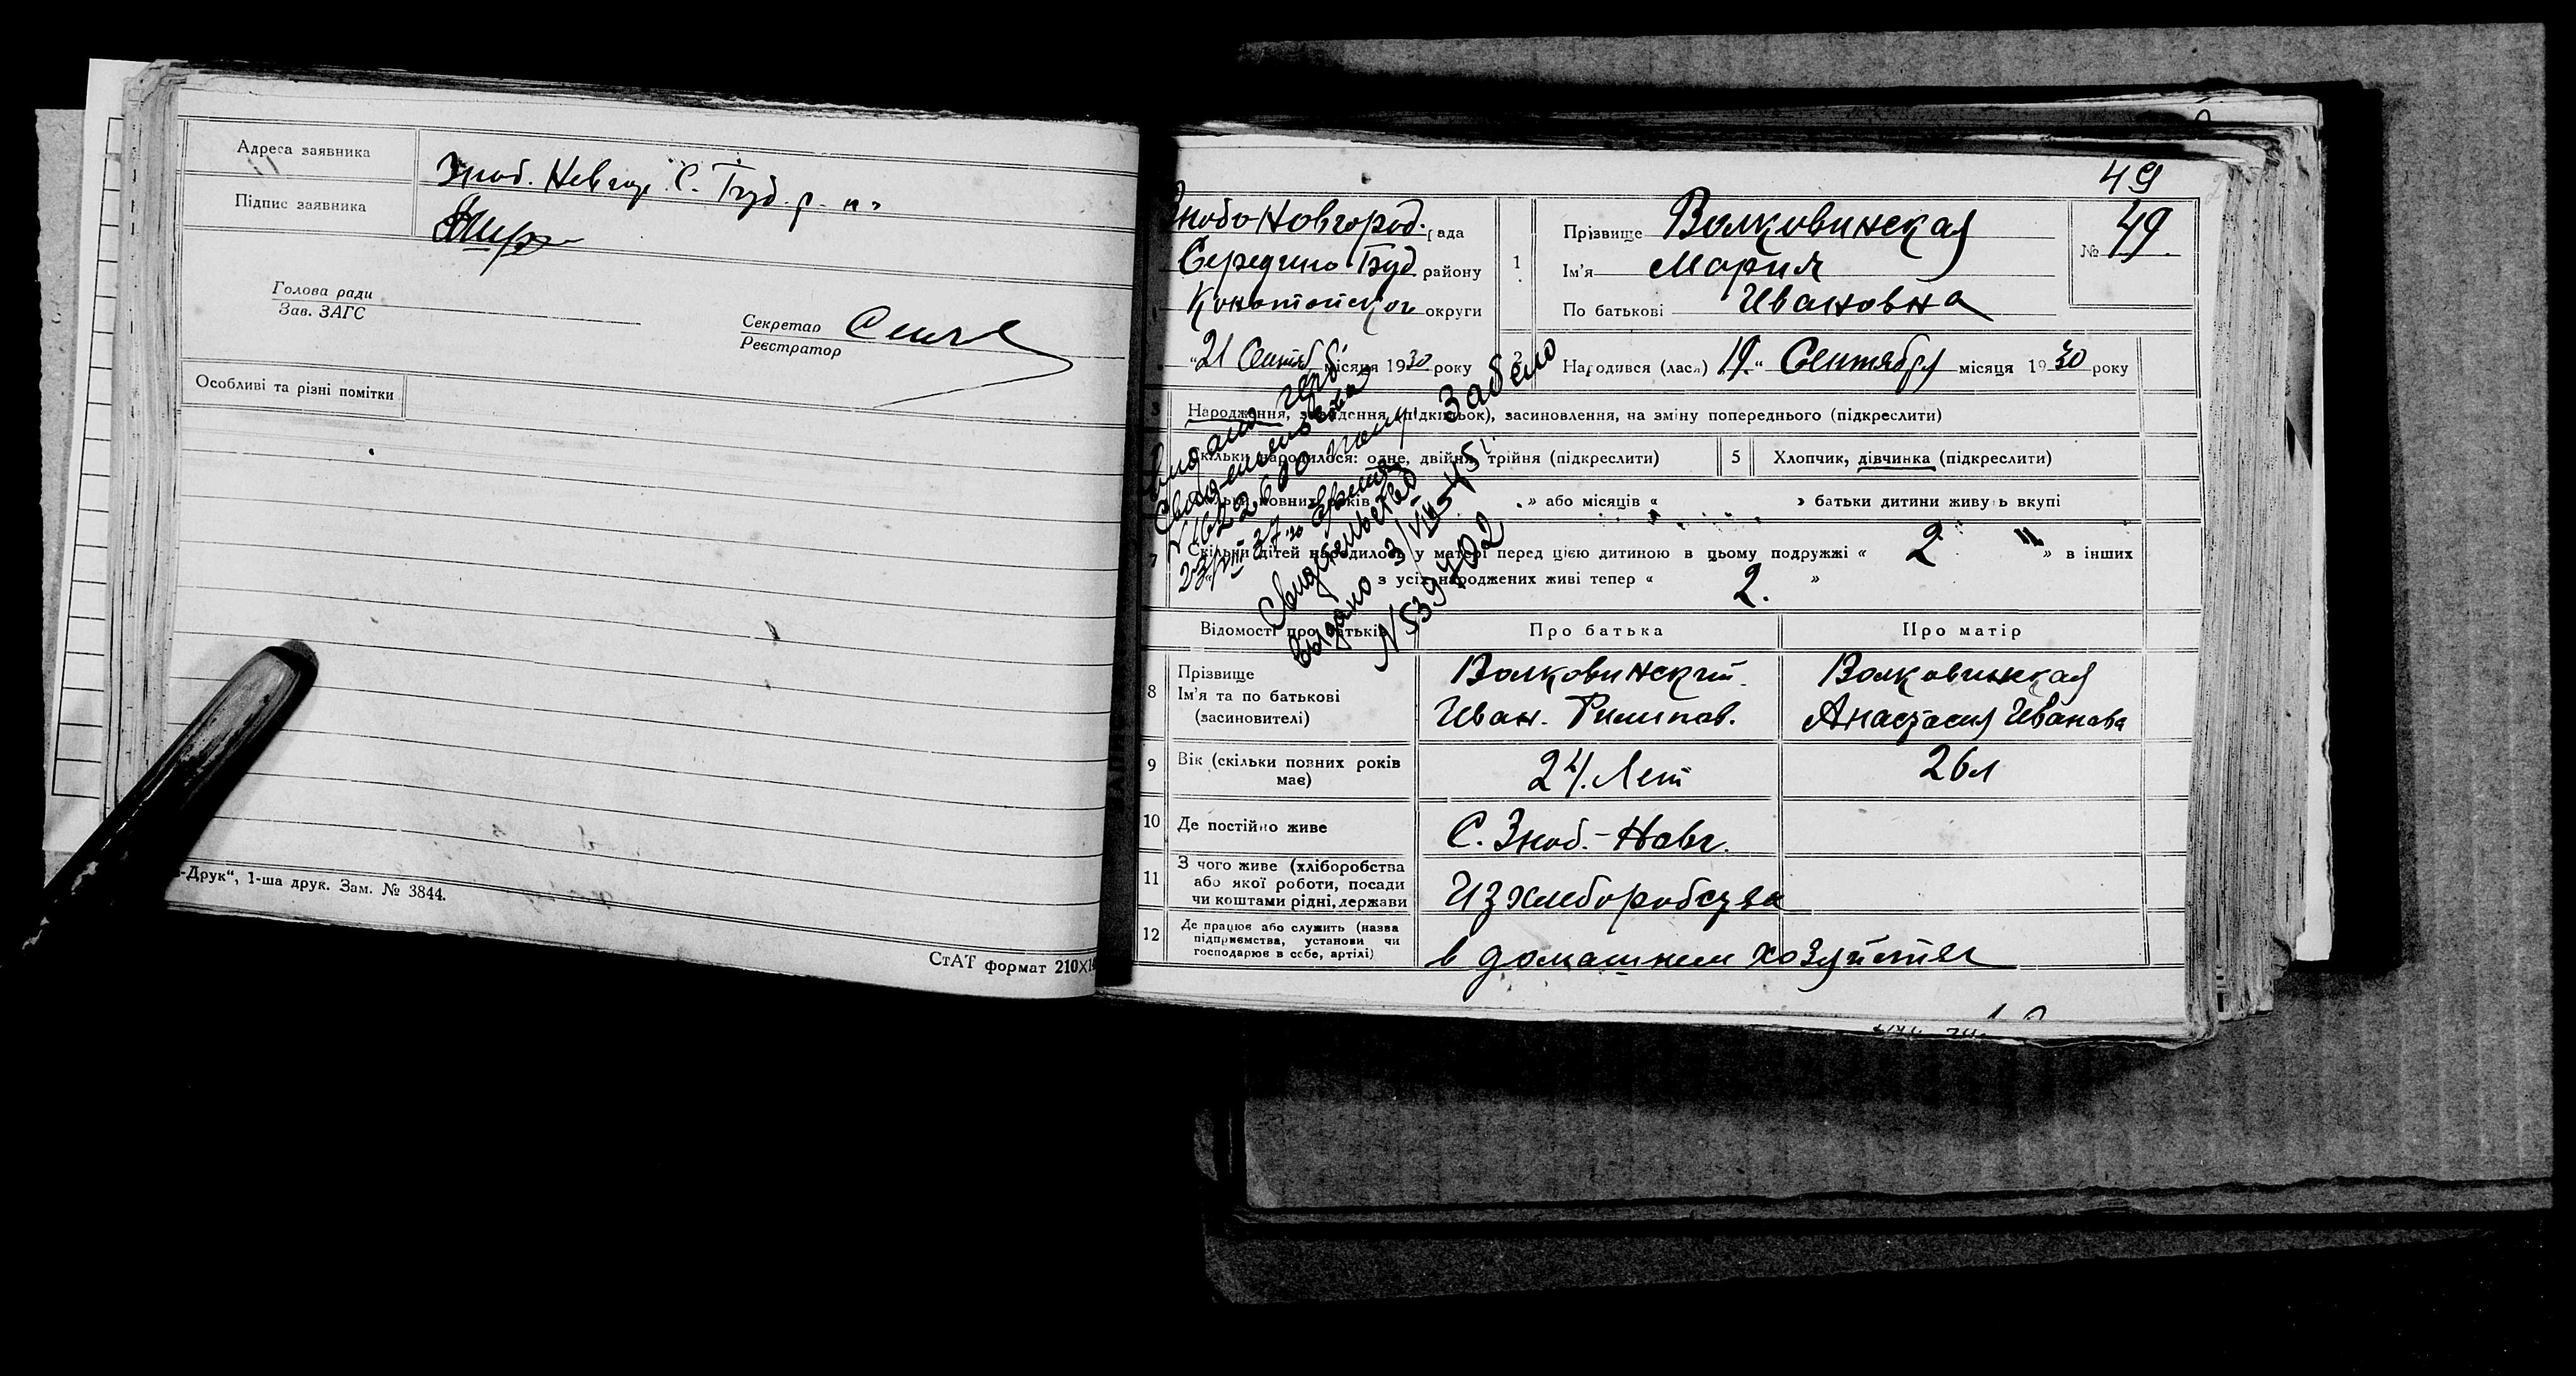 Адреса заявника
Зноб. Невгор. С. Буд. р-на
Підпис заявника
Голова ради
Зав. ЗАГС
Секретар
Реєстратор
Особливі та різні помітки
-Друк“, 1-ша друк. Зам. № 3844.
СтАТ формат 210×1
49
Знобо Новгород. рада
Середино Буд району
Конотопског округи
"21 Сентяб. місяця 1930 року
1
Прізвище Волковинская
Ім'я Мария
По батькові Ивановна
№ 49.
2
Народився (лась) 19 " Сентября місяця 1930 року
3 Народження, знайдення (підкидьок), засиновлення, на зміну попереднього (підкреслити)
Скільки народилося: одне, двійня, трійня (підкреслити)
5 Хлопчик, дівчинка (підкреслити)
повних років » або місяців « » батьки дитини живуть вкупі
7 Скільки дітей народилось у матері перед цією дитиною в цьому подружжі « 2 » в інших
з усіх народжених живі тепер « 2. »
Свидетельство
выдано 3/VII-45
N 539402
Забело
Відомості про батьків
Про батька
Про матір
8 Прізвище
Ім'я та по батькові
(засиновителі)
Волковинский
Иван. Филипов.
Волковинская
Анастасия Иванова
9 Вік (скільки повних років
має)
24. Лет
26 л
10 Де постійно живе
С. Зноб.-Новг.
11 З чого живе (хліборобства
або якої роботи, посади
чи коштами рідні, держави
Из хлеборобства
12 Де працює або служить (назва
підприємства, установи чи
господарює в себе, артілі)
в домашнем хозяйстве